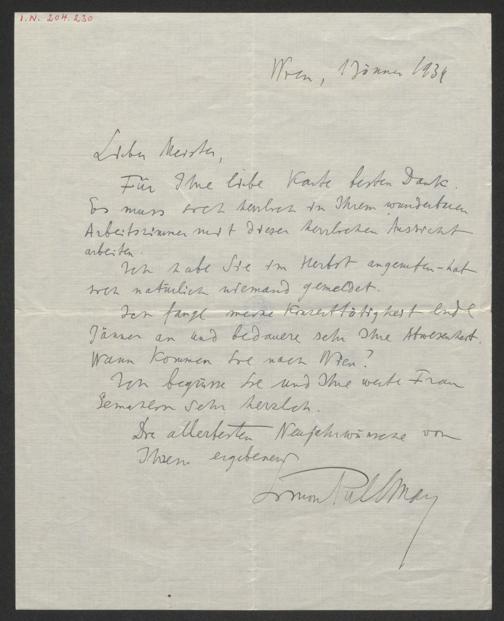 I.N. 204.230
Wien, 1 Jänner 1934
Lieber Meister,
Für Ihre liebe Karte besten Dank.
Es muss sich herrlich in Ihrem wunderbaren
Arbeitszimmer mit dieser herrlichen Aussicht
arbeiten.
Ich habe Sie im Herbst angerufen - hat
sich natürlich niemand gemeldet.
Ich fange meine Konzerttätigkeit Ende
Jänner an und bedauere sehr Ihre Abwesenheit.
Wann kommen Sie nach Wien?
Ich begrüsse Sie und Ihre werte Frau
Gemahlin sehr herzlich.
Die allerbesten Neujahrwünsche von
Ihrem ergebenen
Simon Pullman